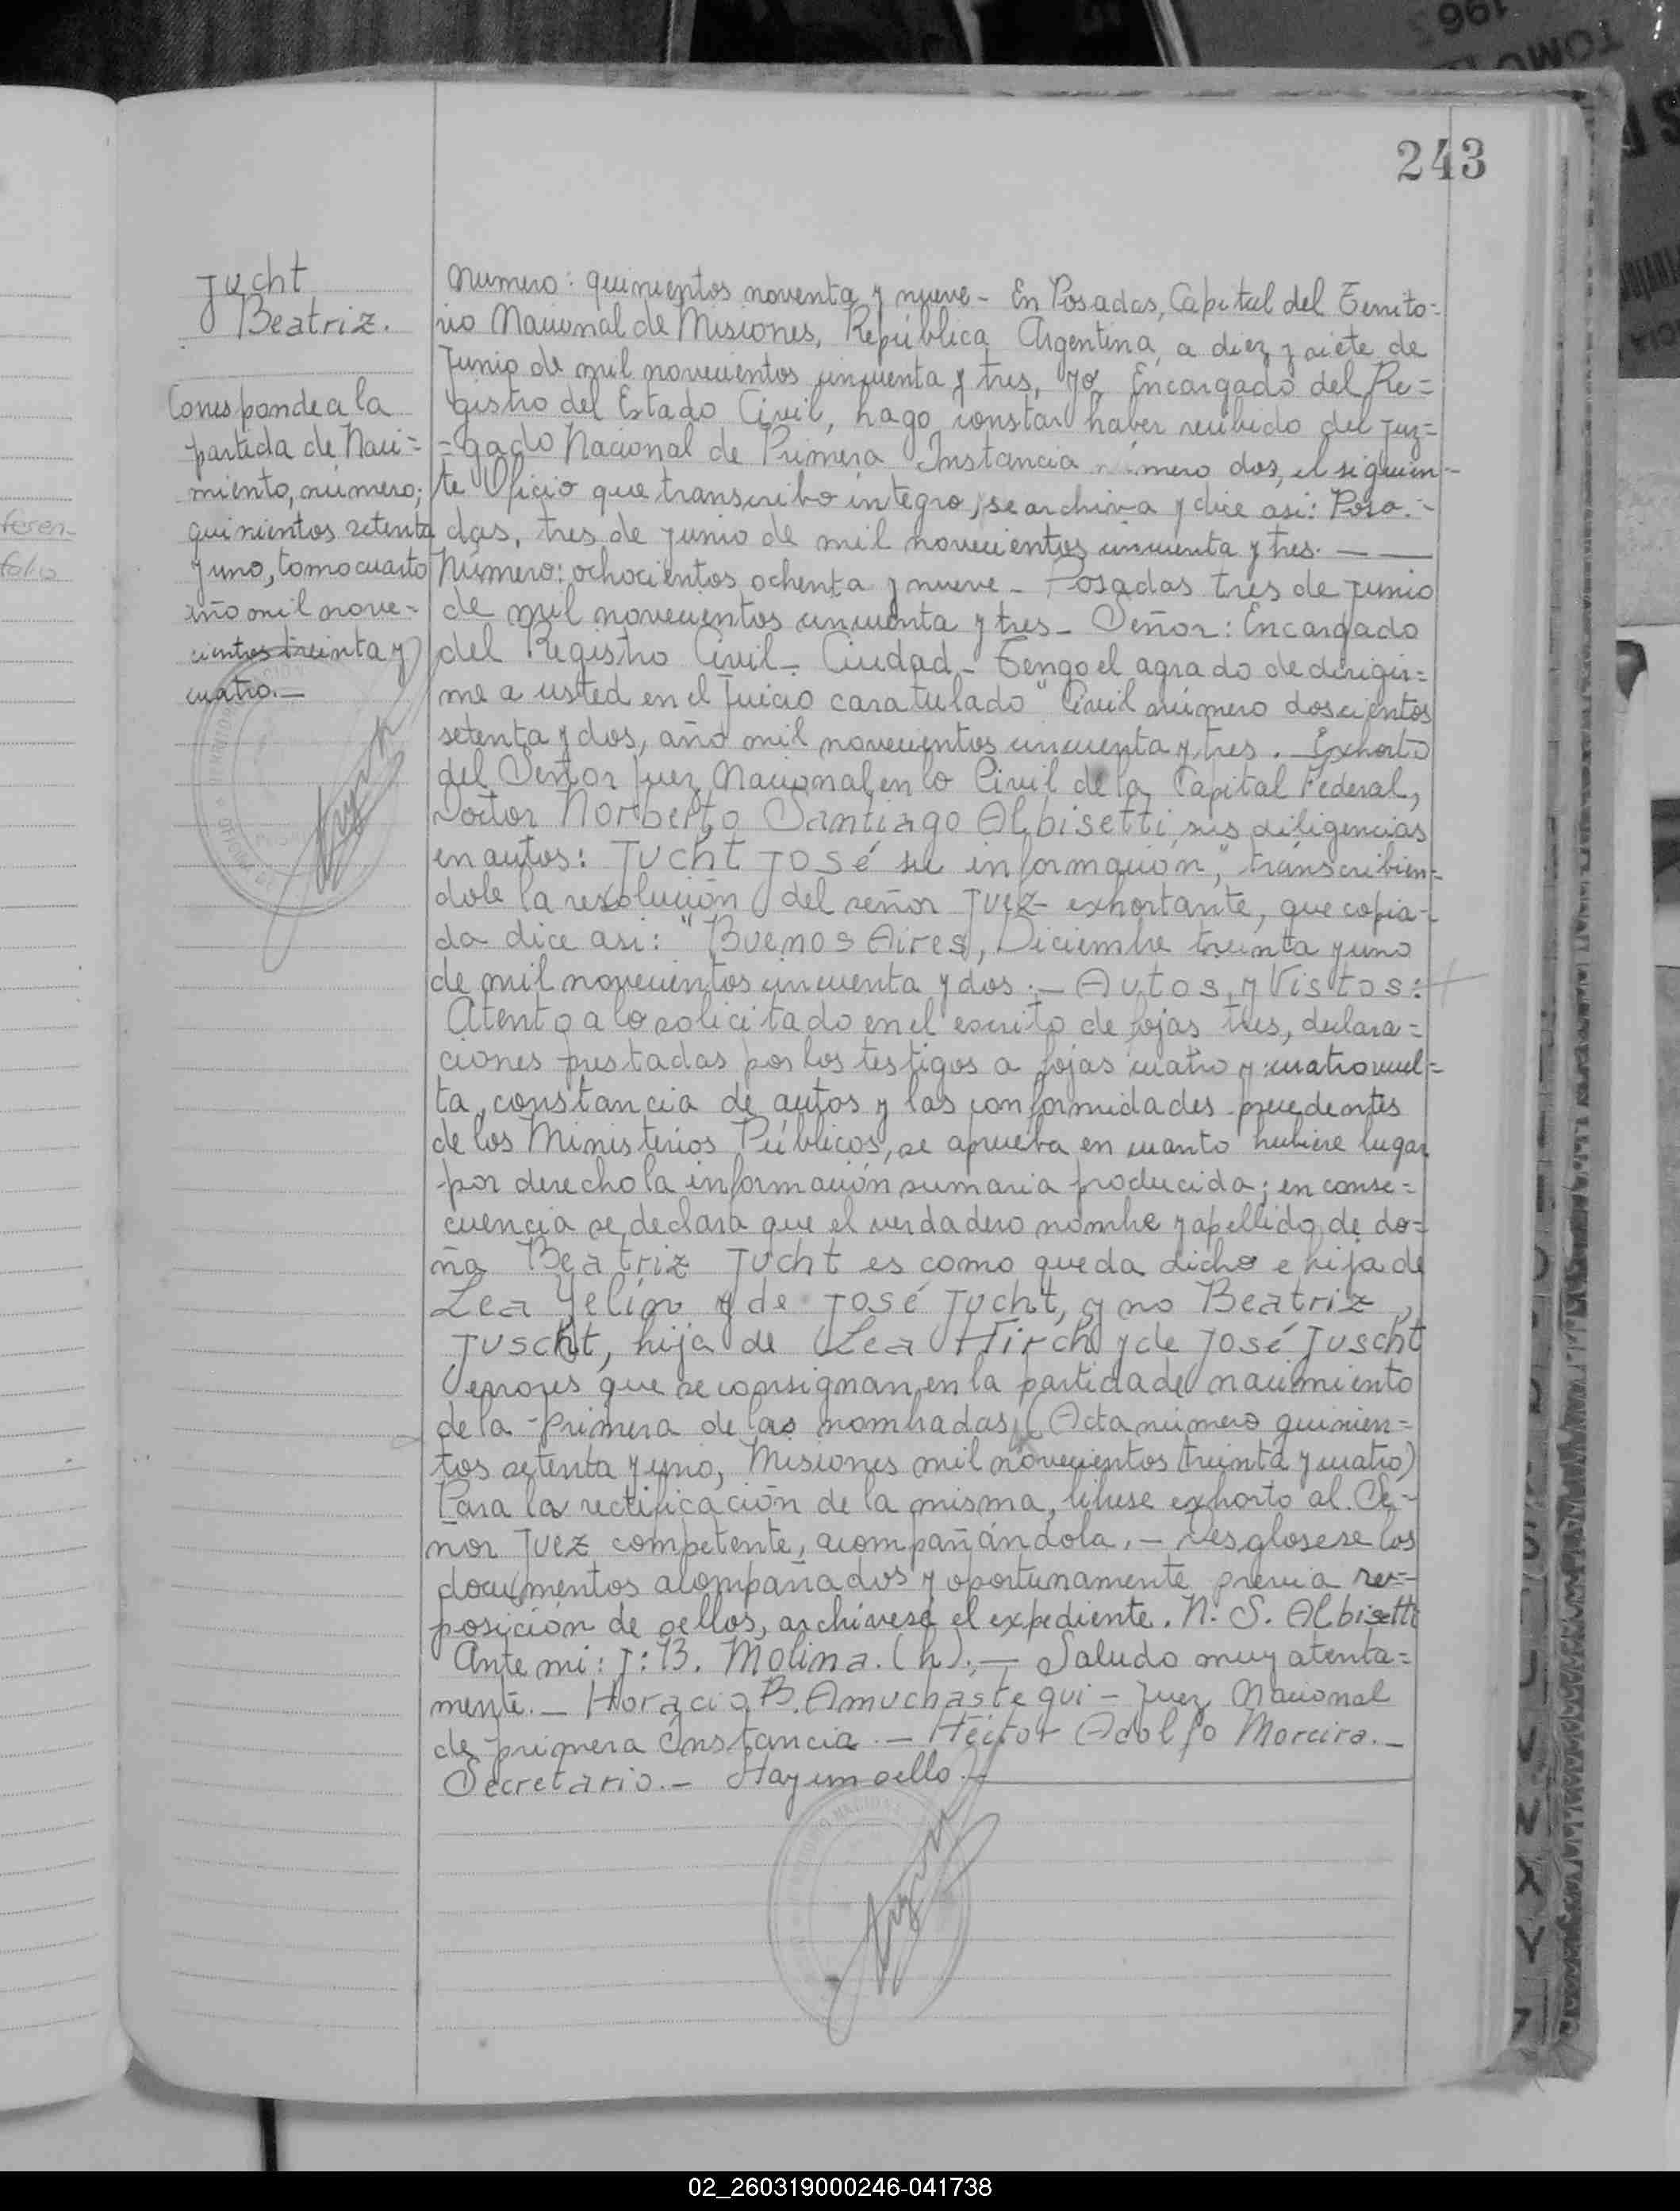 243
Jucht
Beatriz.
Corresponde a la
partida de Naci=
miento, número;
quinientos setenta
y uno, tomo cuarto
año mil nove=
cientos treinta y
cuatro.—
Numero: quinientos noventa y nueve - En Posadas, Capital del Territo=
rio Nacional de Misiones, República Argentina, a diez y siete de
Junio de mil novecientos cincuenta y tres, yo Encargado del Re=
gistro del Estado Civil, hago constar haber recibido del Juz=
=gado Nacional de Primera Instancia número dos, el siguien-
te Oficio que transcribo íntegro, se archiva y dice asi: Posa.-
das, tres de junio de mil novecientos cincuenta y tres. — —
Número: ochocientos ochenta y nueve - Posadas tres de junio
de mil novecientos cincuenta y tres - Señor: Encargado
del Registro Civil - Ciudad - Tengo el agrado de dirigir=
me a usted en el Juicio caratulado "Civil número doscientos
setenta y dos, año mil novecientos cincuenta y tres. Exhorto
del Señor Juez Nacional en lo Civil de la Capital Federal,
Doctor Norberto Santiago Albisetti, sus diligencias
en autos: Jucht José su información", transcribien=
dole la resolución del señor Juez exhortante, que copia-
da dice asi: "Buenos Aires, Diciembre treinta y uno
de mil novecientos cincuenta y dos.- Autos y Vistos:
Atento a lo solicitado en el escrito de fojas tres, declara=
ciones prestadas por los testigos a fojas cuatro y cuatro vuel=
ta, constancia de autos y las conformidades precedentes
de los Ministerios Públicos, se aprueba en cuanto hubiere lugar
por derecho la información sumaria producida; en conse=
cuencia se declara que el verdadero nombre y apellido de do=
ña Beatriz Jucht es como queda dicho e hija de
Lea Yelin y de José Jucht, y no Beatriz,
Juscht, hija de Lea Hirch y de José Juscht
errores que se consignan en la partida de nacimiento
de la primera de las nombradas (Acta número quinien=
tos setenta y uno, Misiones mil novecientos treinta y cuatro)
Para la rectificación de la misma, líbrese exhorto al Se-
ñor Juez competente, acompañándola. - Desglosese los
documentos acompañados y oportunamente previa re=
posición de sellos, archívese el expediente. N. S. Albisetti
Ante mi: J: B. Molina. (h).- Saludo muy atenta=
mente. - Horacio B. Amuchastegui - Juez Nacional
de primera instancia. - Héctor Adolfo Moreira. -
Secretario. - Hay un sello. -
02_260319000246-041738